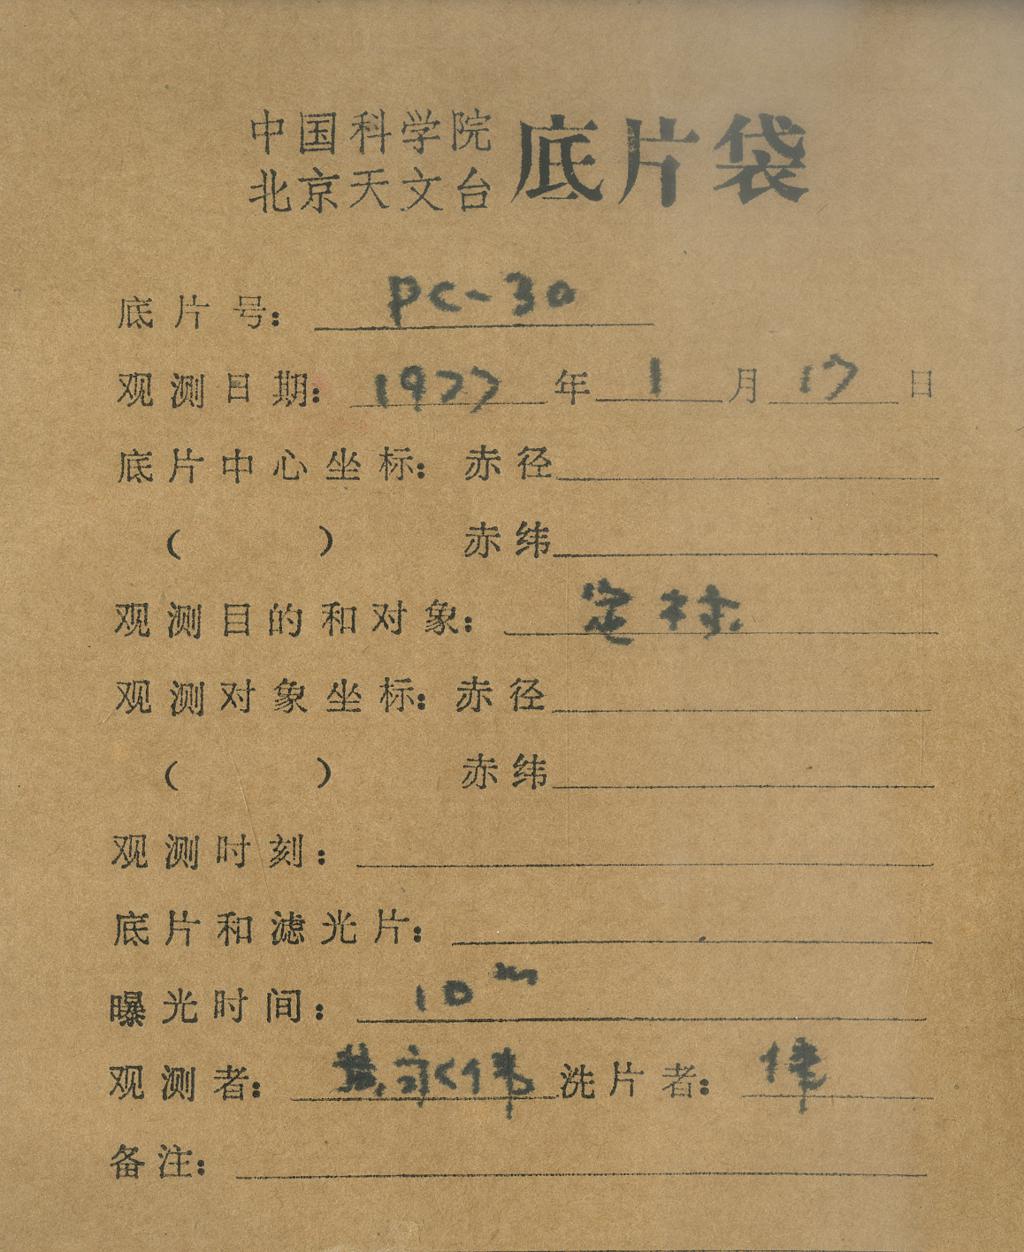 中国科学院
北京天文台 底片袋
底片号: PC-30
观测日期: 1977年1月17日
底片中心坐标: 赤径
( ) 赤纬
观测目的和对象: 定标
观测对象坐标: 赤径
( ) 赤纬
观测时刻:
底片和滤光片:
曝光时间: 10m
观测者: 黄永伟 洗片者: 伟
备注: